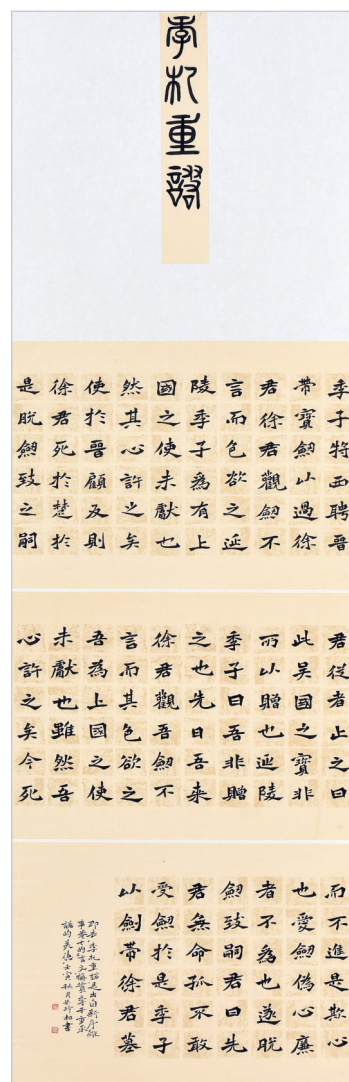 季札重諾
季子将西聘晉
帶寶劒以過徐
君徐君觀劒不
言而色欲之延
陵季子爲有上
國之使未獻也
然其心許之矣
使於晉顧反則
徐君死於楚於
是脫劒致之嗣
君從者止之曰
此吴國之寶非
所以贈也延陵
季子曰吾非贈
之也先日吾来
徐君觀吾劒不
言而其色欲之
吾為上國之使
未獻也雖然吾
心許之矣今死
而不進是欺心
也愛劒偽心廉
者不爲也遂脫
劒致嗣君曰先
君無命孤不敢
受劒於是季子
以劍帶徐君墓
季札重諾選出自新序
稱贊季子重承
諾的美德壬寅秋月書